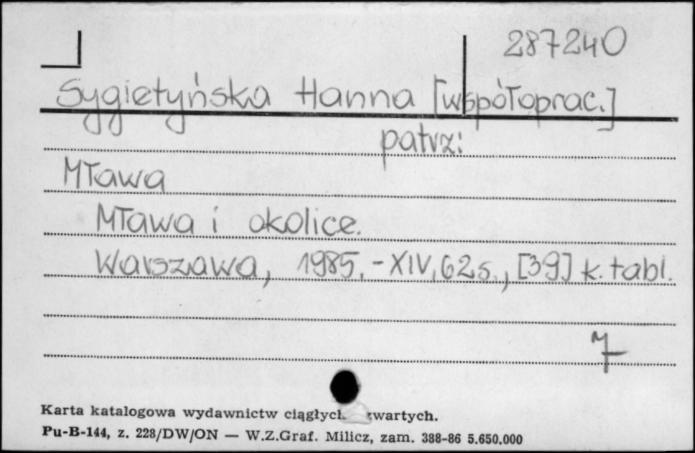 287240
Sygietyńska Hanna [współoprac.]
patrz:
Mława
Mława i okolice.
Warszawa, 1985. - XIV, 62 s., [39] k. tabl.
7
Karta katalogowa wydawnictw ciągłych zwartych.
Pu-B-144, z. 228/DW/ON — W.Z.Graf. Milicz, zam. 388-86 5.650.000